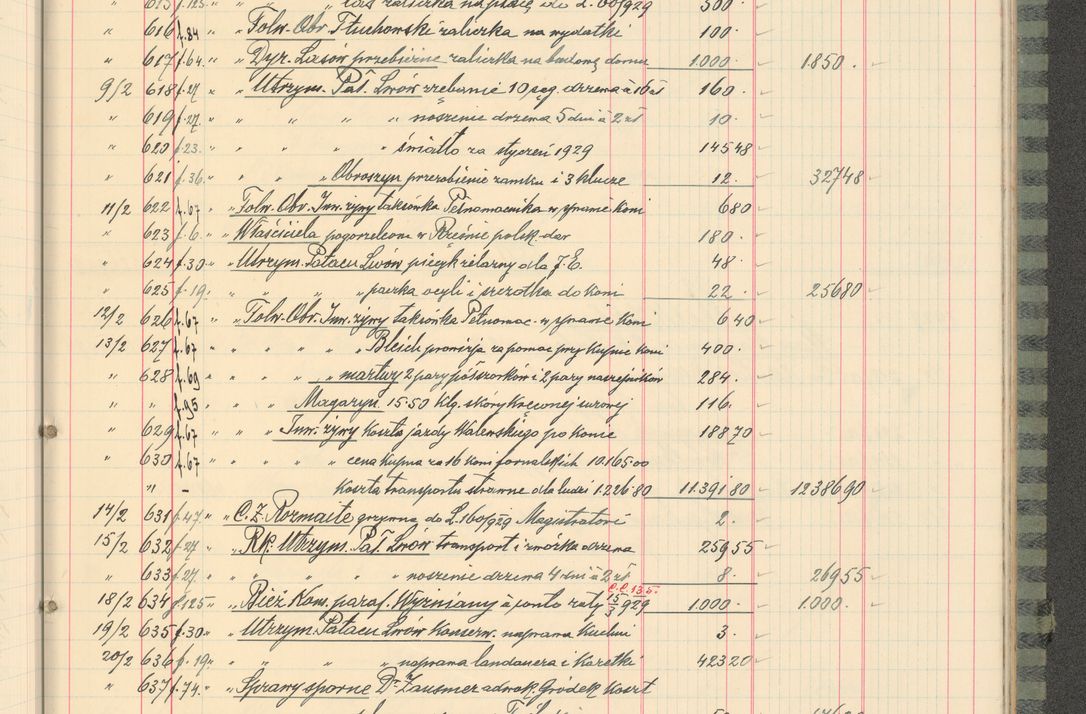 " 615 f.125. " " " zaliczka na płacę do L. 60/929 500.
" 616 f.84 " Folw. Obr. Tłuchowski zaliczka na wydatki 100.
" 617 f.64. " Dyr. Lasów przebieźne zaliczka na budowę domu 1.000. 1850.
9/2 618 f.27. " Utrzym. Pał. Lwów rżebanie 10 sąg. drzewa à 16 zł 160.
" 619 f.27. " " " " noszenie drzewa 5 dni à 2 zł 10.
" 620 f.23. " " " " światło za styczeń 1929 145 48
" 621 f.36. " " " Obroszyn przerobienie zamku i 3 klucze 12. 327 48
11/2 622 f.67 " Folw. Obr. Inw. żywy taksówka Pełnomocnika w sprawie koni 6 80
" 623 f.6. " Właściciela pogorzelcom w Rzęśnie polsk. dar 180.
" 624 f.30 " Utrzym. Pałacu Lwów piecyk żelazny dla J.E. 48.
" 625 f.19. " " " " paczka ocyli i szczotka do koni 22. 256 80
12/2 626 f.67 " Folw. Obr. Inw. żywy taksówka Pełnomoc. w sprawie koni 6 40
13/2 627 f.67 " " " " " Bleich prowizja za pomoc przy kupnie koni 400.
" 628 f.69 " " " " " martwy 2 pary półszorków i 2 pary naszelników 284.
" " f.95 " " " Magazyn 15.50 klg. skóry kręconej surowej 116.
" 629 f.67 " " " Inw. żywy koszta jazdy Walewskiego po konie 188 70
" 630 f.67 " " " " " cena kupna za 16 koni fornalskich 10.165.00
" - koszta transportu strawne dla ludzi 1.226.80 11.391 80 12386 90
14/2 631 f.47. " C.Z. Rozmaite grzywna do L. 160/929 Magistratowi 2.
15/2 632 f.27 " Rk. Utrzym. Pał. Lwów transport i zwózka drzewa 259 55
" 633 f.27. " " " " " noszenie drzewa 4 dni à 2 zł 8. 269 55
C.C. 13.5.
18/2 634 f.125 " Bież. Kom. paraf. Wyżniany à conto raty 15/3 929 1.000. 1.000.
19/2 635 f.30 " Utrzym. Pałacu Lwów Konserw. naprawa kuchni 3.
20/2 636 f.19. " " " " naprawa landauera i karetki 423 20
" 637 f.74. " Sprawy sporne Dr Zausmer adwok. Gródek koszt